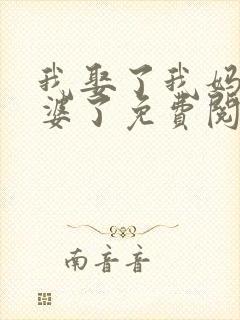 我娶了我妈
婆了免费阅
南音音